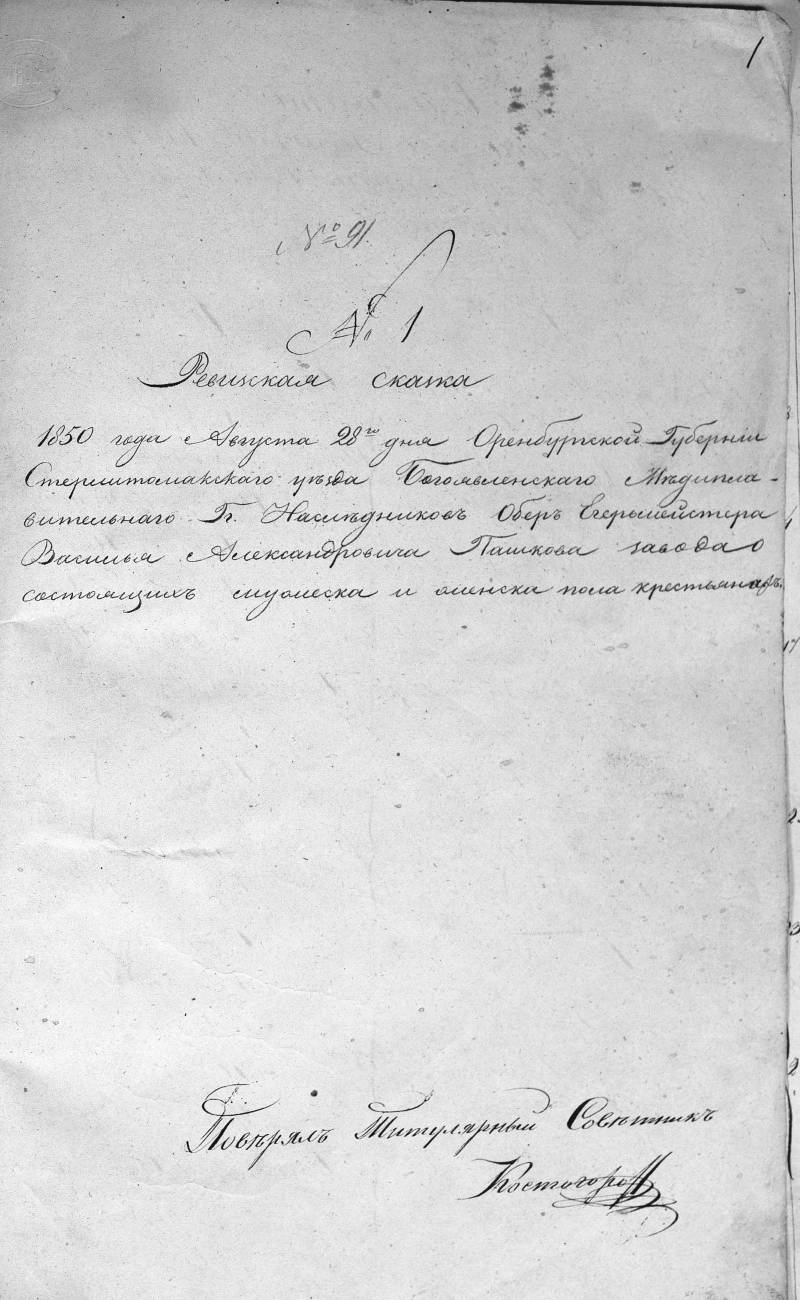 1
№ 91.
№ 1
Ревизская сказка
1850 года Августа 28го дня Оренбургской Губерніи
Стерлитамакского уѣзда Богоявленского Мѣдипла-
вительнаго Г. Наслѣдниковъ Оберъ Егермейстера
Василья Александровича Пашкова завода о
состоящихъ мужеска и женска пола крестьянахъ.
Повѣрялъ Титулярный Совѣтникъ